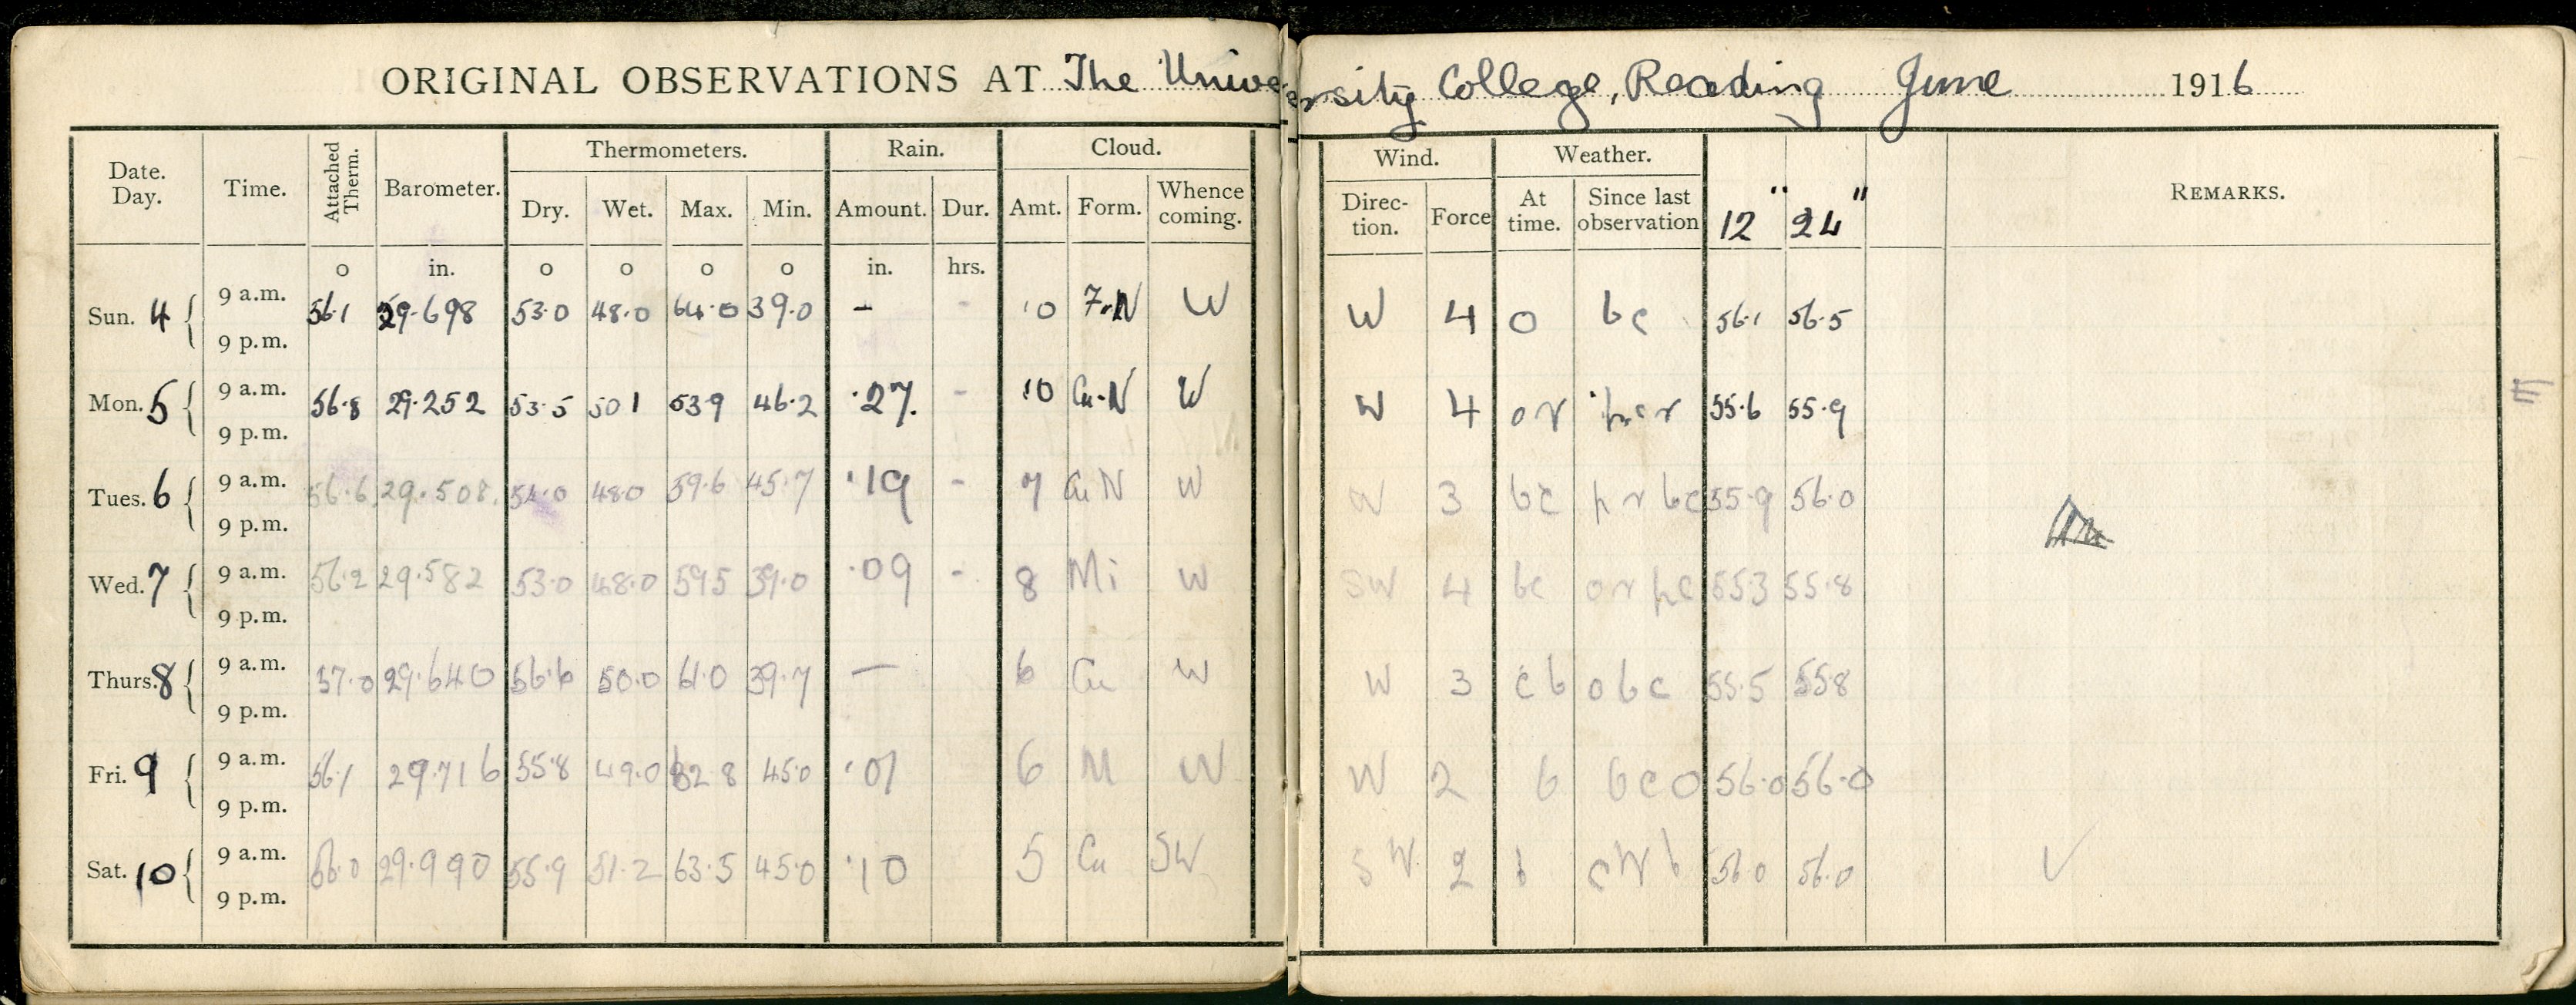 ORIGINAL OBSERVATIONS AT The University College, Reading June 1916
Date. Day. Time. Attached Therm. Barometer. Thermometers. Rain. Cloud. Wind. Weather. 12" 24" REMARKS.
Dry. Wet. Max. Min. Amount. Dur. Amt. Form. Whence coming. Direc- tion. Force At time. Since last observation
o in. o o o o in. hrs.
Sun. 4 9 a.m. 56.1 29.698 53.0 48.0 64.0 39.0 - - 10 Fr-N W W 4 o bc 56.1 56.5
9 p.m.
Mon. 5 9 a.m. 56.8 29.252 53.5 50 1 53 9 46.2 .27 - 10 Cu-N W W 4 or 55.6 55.9
9 p.m.
Tues. 6 9 a.m. 56.6 29.508 48.0 59.6 45.7 .19 - 7 Cu N W W 3 bc p r bc 55.9 56.0
9 p.m.
Wed. 7 9 a.m. 56.2 29.582 53.0 48.0 59 5 39.0 .09 - 8 Ni W SW 4 bc or pc 55 3 55.8
9 p.m.
Thurs. 8 9 a.m. 57.0 29.640 56.6 50.0 61.0 39.7 — 6 Cu W W 3 c b o b c 55.5 55 8
9 p.m.
Fri. 9 9 a.m. 56.1 29.716 55.8 49.0 62 8 45.0 .01 6 W W 2 b b c o 56.0 56.0
9 p.m.
Sat. 10 9 a.m. 56.0 29.990 55.9 51.2 63.5 45.0 .10 5 Cu SW SW 2 b 56.0 56.0
9 p.m.